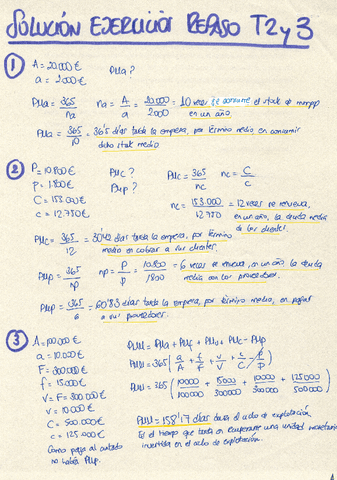 SOLUCIÓN EJERCICIOS REPASO T2 y 3
1 A = 20.000 € PMa?
a = 2000 €
PMa = 365/na na = A/a = 20.000/2000 = 10 veces se consume el stock de mmpp
en un año.
PMa = 365/10 = 36'5 días tarda la empresa, por término medio en consumir
dicho stock medio
2 P = 10.800 € PMc? PMc = 365/nc nc = C/c
p = 1.800 € PMp?
C = 153.000 € nc = 153.000/12.750 = 12 veces se renueva,
c = 12.750 € en un año, la deuda media
de los clientes.
PMc = 365/12 = 30'42 días tarda la empresa, por término
medio en cobrar a sus clientes.
PMp = 365/np np = P/p = 10.800/1800 = 6 veces se renueva, en un año la deuda
media con los proveedores.
PMp = 365/6 = 60'83 días tarda la empresa, por término medio, en pagar
a sus proveedores.
3 A = 100.000 € PMM = PMa + PMf + PMv + PMc - PMp
a = 10.000 €
F = 200.000 € PMM = 365 (a/A + f/F + v/V + c/C - p/P)
f = 15.000 €
V = F = 300.000 € PMM = 365 (10000/100000 + 15000/200000 + 10000/300000 + 125000/500000)
v = 10.000 €
C = 500.000 € PMM = 158'17 días dura el ciclo de explotación.
c = 125.000 € Es el tiempo que tarda en recuperarse una unidad monetaria
Como paga al contado invertida en el ciclo de explotación.
no habrá PMp.